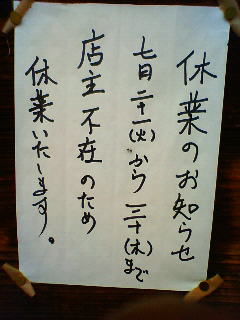 休業のお知らせ
七月二十一(火)から三十(木)まで
店主不在のため
休業いたします。